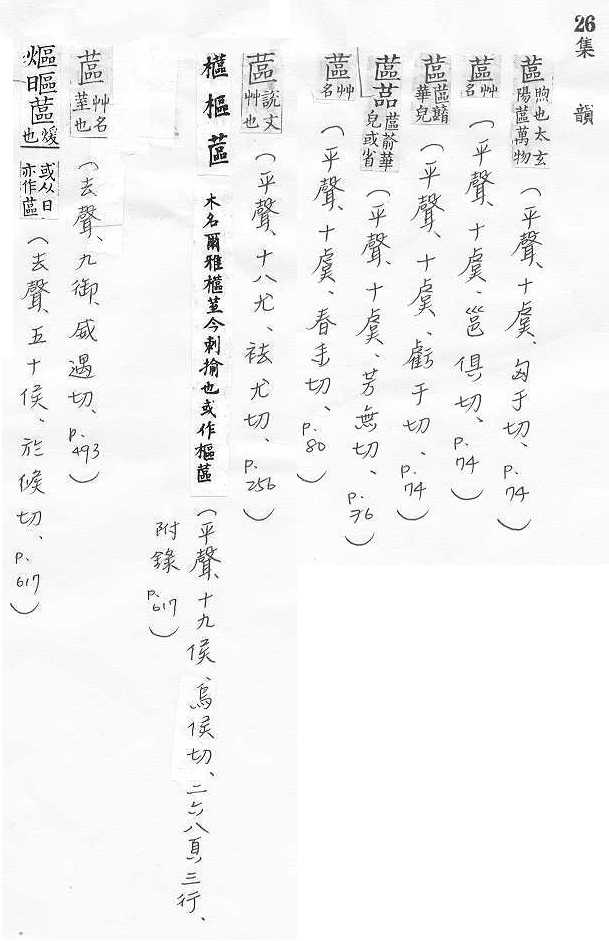 26 集韻
蓲 煦也太玄陽蓲萬物（平聲、十虞、匈于切、p.74）
蓲 艸名（平聲、十虞、邕俱切、p.74）
蓲 蓲䔢華皃（平聲、十虞、虧于切、p.74）
蓲 蓲蒭華皃或省（平聲、十虞、芳無切、p.76）
蓲 艸名（平聲、十虞、春朱切、p.80）
蓲 說文艸也（平聲、十八尤、袪尤切、p.256）
櫙樞蓲 木名爾雅櫙荎今刺揄也或作樞蓲（平聲、十九侯、烏侯切、二六八頁三行、
附錄 p.617）
蓲 艸名荎也（去聲、九御、威遇切、p.493）
熰㬂蓲 煖也 或从日亦作蓲（去聲、五十候、於候切、p.617）